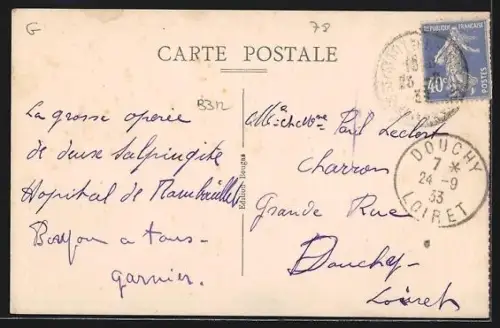 G
78
CARTE POSTALE
RÉPUBLIQUE FRANÇAISE
40c
POSTES
B312
La grosse opérée
de deux Salpingite
Hopital de Rambouillet
Bonjou a tous-
garnier.
Edition-Bougas
Paul Leclert
Charron
Grande Rue
Douchy-
Loiret
DOUCHY
7 *
24 - 9
33
LOIRET